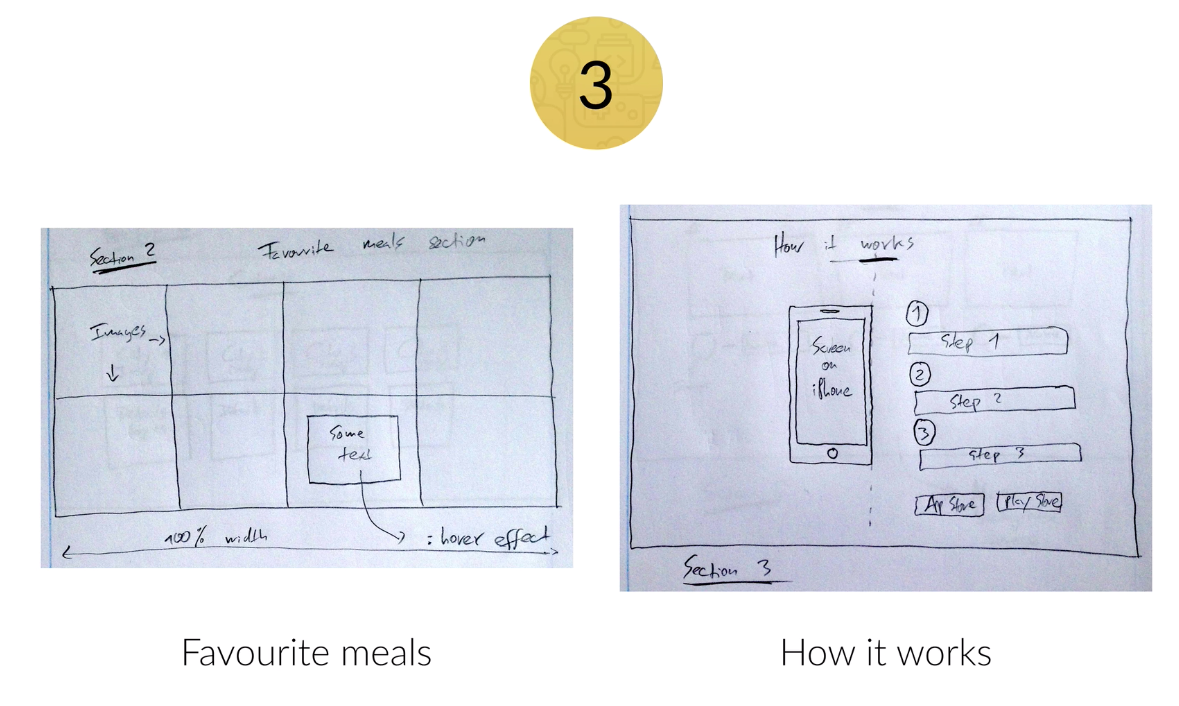 3
Section 2
Favourite meals section
Images
Some
text
100% width
: hover effect
How it works
Screen
on
iPhone
1
Step 1
2
Step 2
3
Step 3
App Store
Play Store
Section 3
Favourite meals
How it works